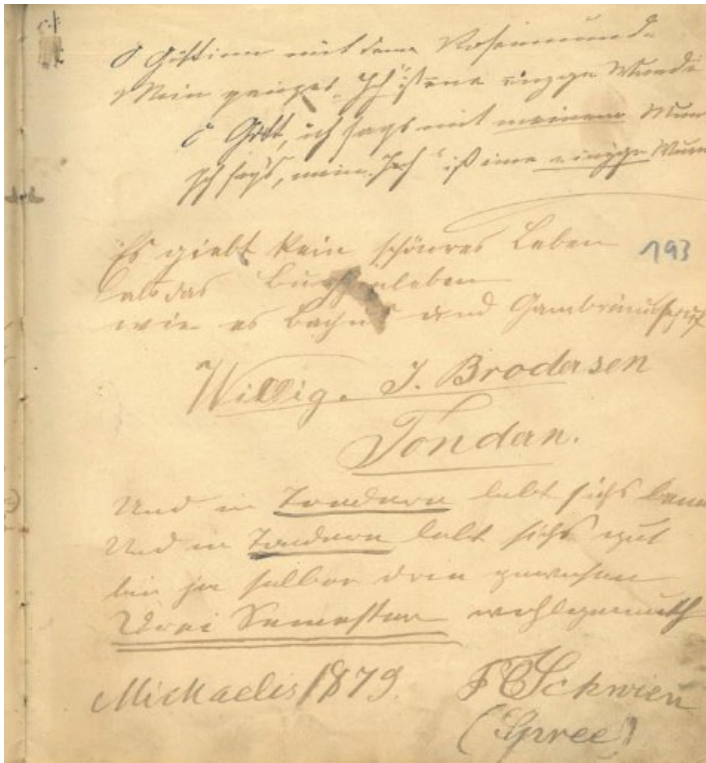 O Göttinn mit dem Rosenmunde
Mein ganzes „Ich" ist eine einzge Wunde
O Gott, ich sags mit meinem Mun
Ich sags, mein „Ich" ist eine einzge Wun
Es giebt kein schönres Leben
193
als das Burschenleben
wie es Bachus und Gambrinus
Willig. J. Brodersen
Tondern.
Und in Tondern lebt sichs
Und in Tondern lebt sichs gut
bin ja selber drin gewesen
Drei Semester wohlgemuth
Michaelis 1879. F C Schwien
(Spree)